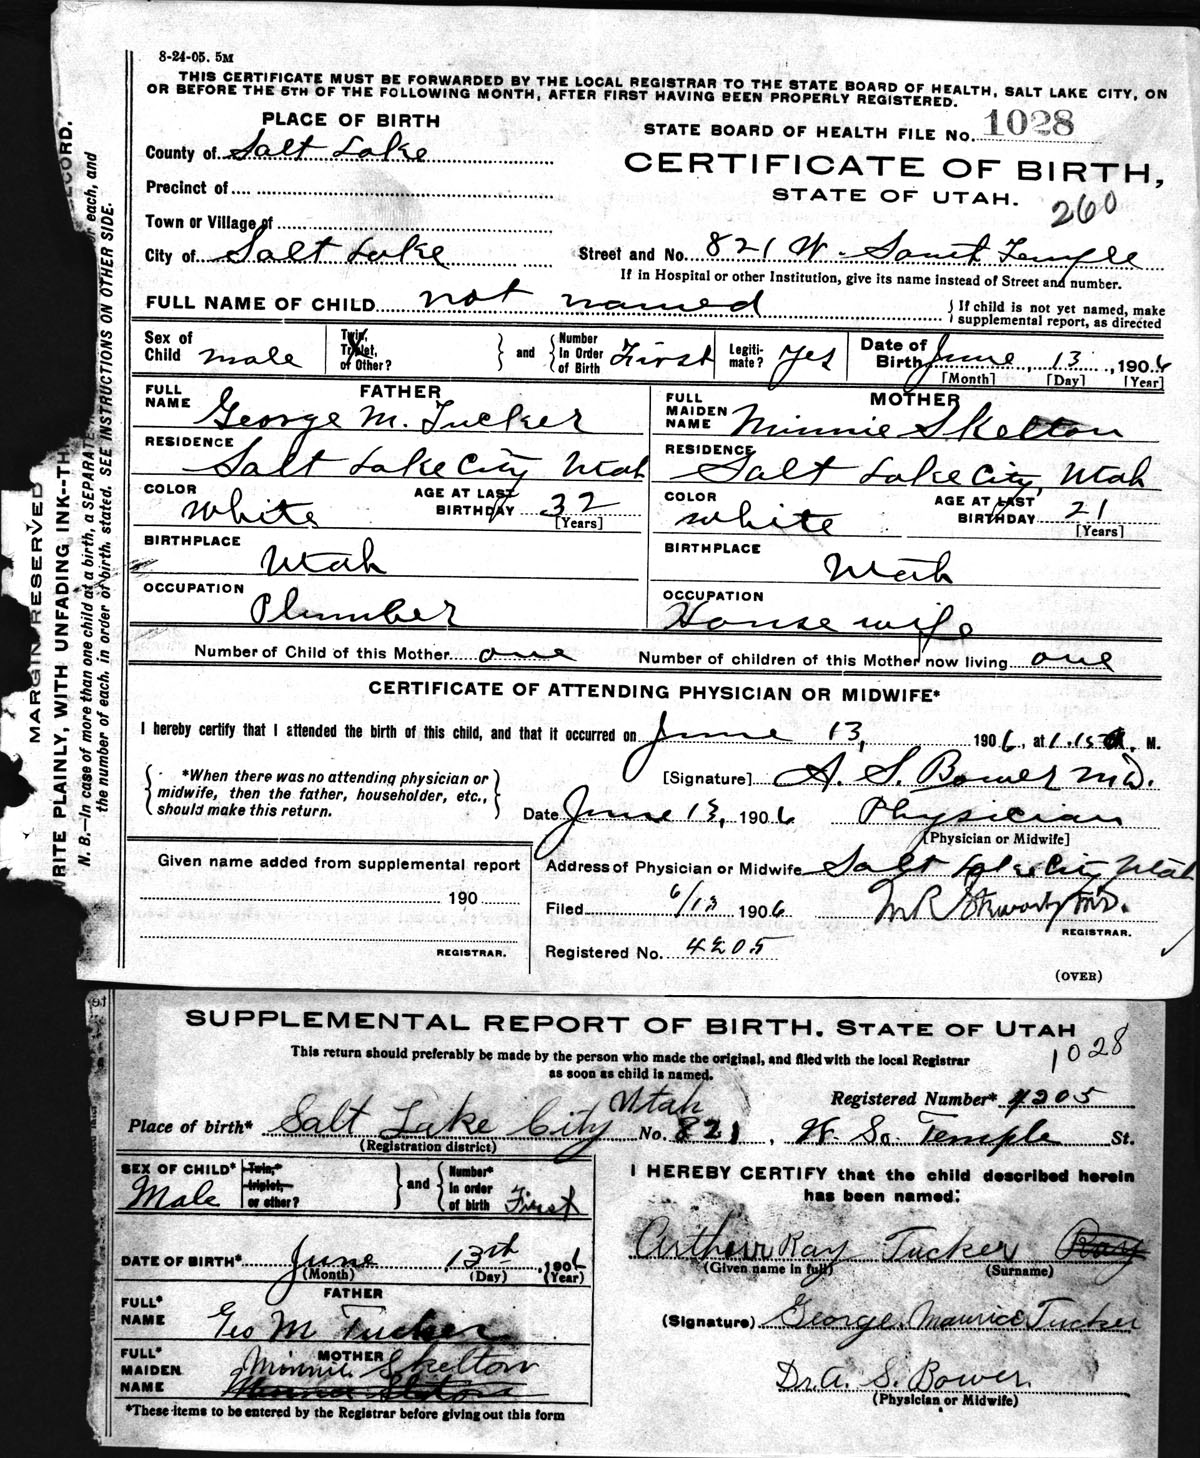 8-24-05. 5M
THIS CERTIFICATE MUST BE FORWARDED BY THE LOCAL REGISTRAR TO THE STATE BOARD OF HEALTH, SALT LAKE CITY, ON
OR BEFORE THE 5TH OF THE FOLLOWING MONTH, AFTER FIRST HAVING BEEN PROPERLY REGISTERED.
PLACE OF BIRTH
STATE BOARD OF HEALTH FILE No. 1028
County of Salt Lake
CERTIFICATE OF BIRTH,
STATE OF UTAH.
260
Precinct of
Town or Village of
City of Salt Lake
Street and No. 821 W. South Temple
If in Hospital or other Institution, give its name instead of Street and number.
FULL NAME OF CHILD not named
If child is not yet named, make
supplemental report, as directed
Sex of Child Male
Twin, Triplet, or Other?
and
Number in Order of Birth First
Legitimate? Yes
Date of Birth June 13, 1906
[Month] [Day] [Year]
FATHER
FULL NAME George M. Tucker
RESIDENCE Salt Lake City Utah
COLOR White
AGE AT LAST BIRTHDAY 32
[Years]
BIRTHPLACE Utah
OCCUPATION Plumber
MOTHER
FULL MAIDEN NAME Minnie Skelton
RESIDENCE Salt Lake City, Utah
COLOR White
AGE AT LAST BIRTHDAY 21
[Years]
BIRTHPLACE Utah
OCCUPATION House wife
Number of Child of this Mother one
Number of children of this Mother now living one
CERTIFICATE OF ATTENDING PHYSICIAN OR MIDWIFE*
I hereby certify that I attended the birth of this child, and that it occurred on June 13, 1906, at 1.15 M.
*When there was no attending physician or
midwife, then the father, householder, etc.,
should make this return.
[Signature] A. S. Bower M.D.
Date June 13, 1906
Physician
[Physician or Midwife]
Given name added from supplemental report
190
REGISTRAR.
Address of Physician or Midwife Salt Lake City Utah
Filed 6/13 1906
REGISTRAR.
Registered No. 4205
(OVER)
MARGIN RESERVED
WRITE PLAINLY, WITH UNFADING INK--TH
ECORD.
N. B.—In case of more than one child at a birth, a SEPARATE
each, and
the number of each, in order of birth, stated. SEE INSTRUCTIONS ON OTHER SIDE.
SUPPLEMENTAL REPORT OF BIRTH. STATE OF UTAH
This return should preferably be made by the person who made the original, and filed with the local Registrar
as soon as child is named.
1028
Registered Number* 4205
Place of birth* Salt Lake City Utah No. 821, W. So. Temple St.
(Registration district)
SEX OF CHILD* Male
Twin,* triplet, or other?
and
Number* in order of birth First
I HEREBY CERTIFY that the child described herein
has been named:
Arthur Ray Tucker Ray
(Given name in full) (Surname)
DATE OF BIRTH* June 13th, 1906
(Month) (Day) (Year)
FATHER
FULL* NAME Geo M Tucker
(Signature) George Maurice Tucker
MOTHER
FULL* MAIDEN NAME Minnie Skelton
Dr. A. S. Bower.
(Physician or Midwife)
*These items to be entered by the Registrar before giving out this form